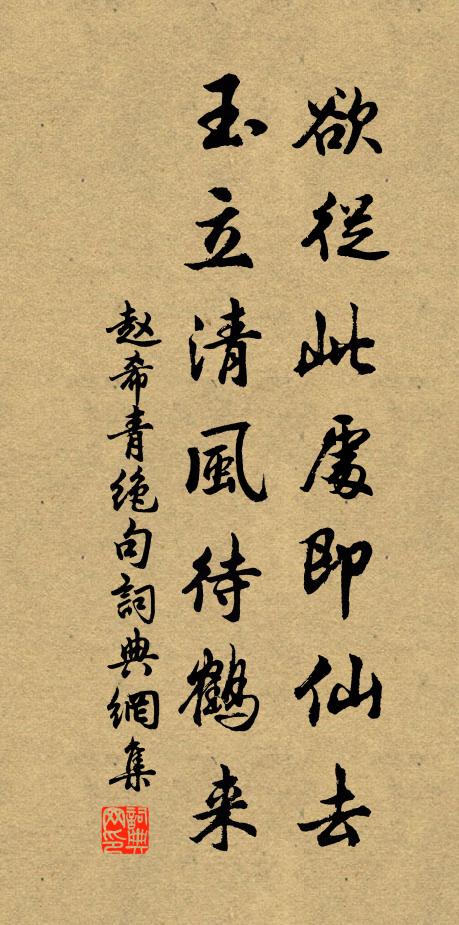 欲從此處即仙去
玉立清風待鶴来
赵希青绝句詞典網集
詞典网印